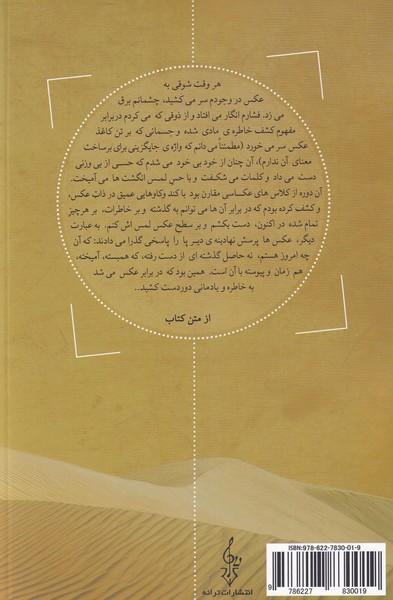 هر وقت شوقی به
عکس در وجودم سر می کشید، چشمانم برق
می زد. فشارم انگار می افتاد و از ذوقی که می کردم دربرابر
مفهوم کشف خاطره ی مادی شده و جسمانی که بر تن کاغذ
عکس سر می خورد (مطمئناً می دانم که واژه ی جایگزینی برای برساخت
معنای آن ندارم)، آن چنان از خود بی خود می شدم که حسی از بی وزنی
دست می داد و کلمات می شکفت و با حس لمس انگشت ها می آمیخت.
آن دوره از کلاس های عکاسی مقارن بود با کند وکاوهایی عمیق در ذات عکس،
و کشف کرده بودم که در برابر آن ها می توانم به گذشته و بر خاطرات، بر هرچیز
تمام شده در اکنون، دست بکشم و بر سطح عکس لمس اش کنم. به عبارت
دیگر، عکس ها پرسش نهادینه ی دیر پا را پاسخی گذرا می دادند: که آن
چه امروز هستم، نه حاصل گذشته ای از دست رفته، که همبسته، آمیخته،
هم زمان و پیوسته با آن است. همین بود که در برابر عکس می شد
به خاطره و یادمانی دوردست کشید..
از متن کتاب
انتشارات ترانه
ISBN:978-622-7830-01-9
9 786227 830019